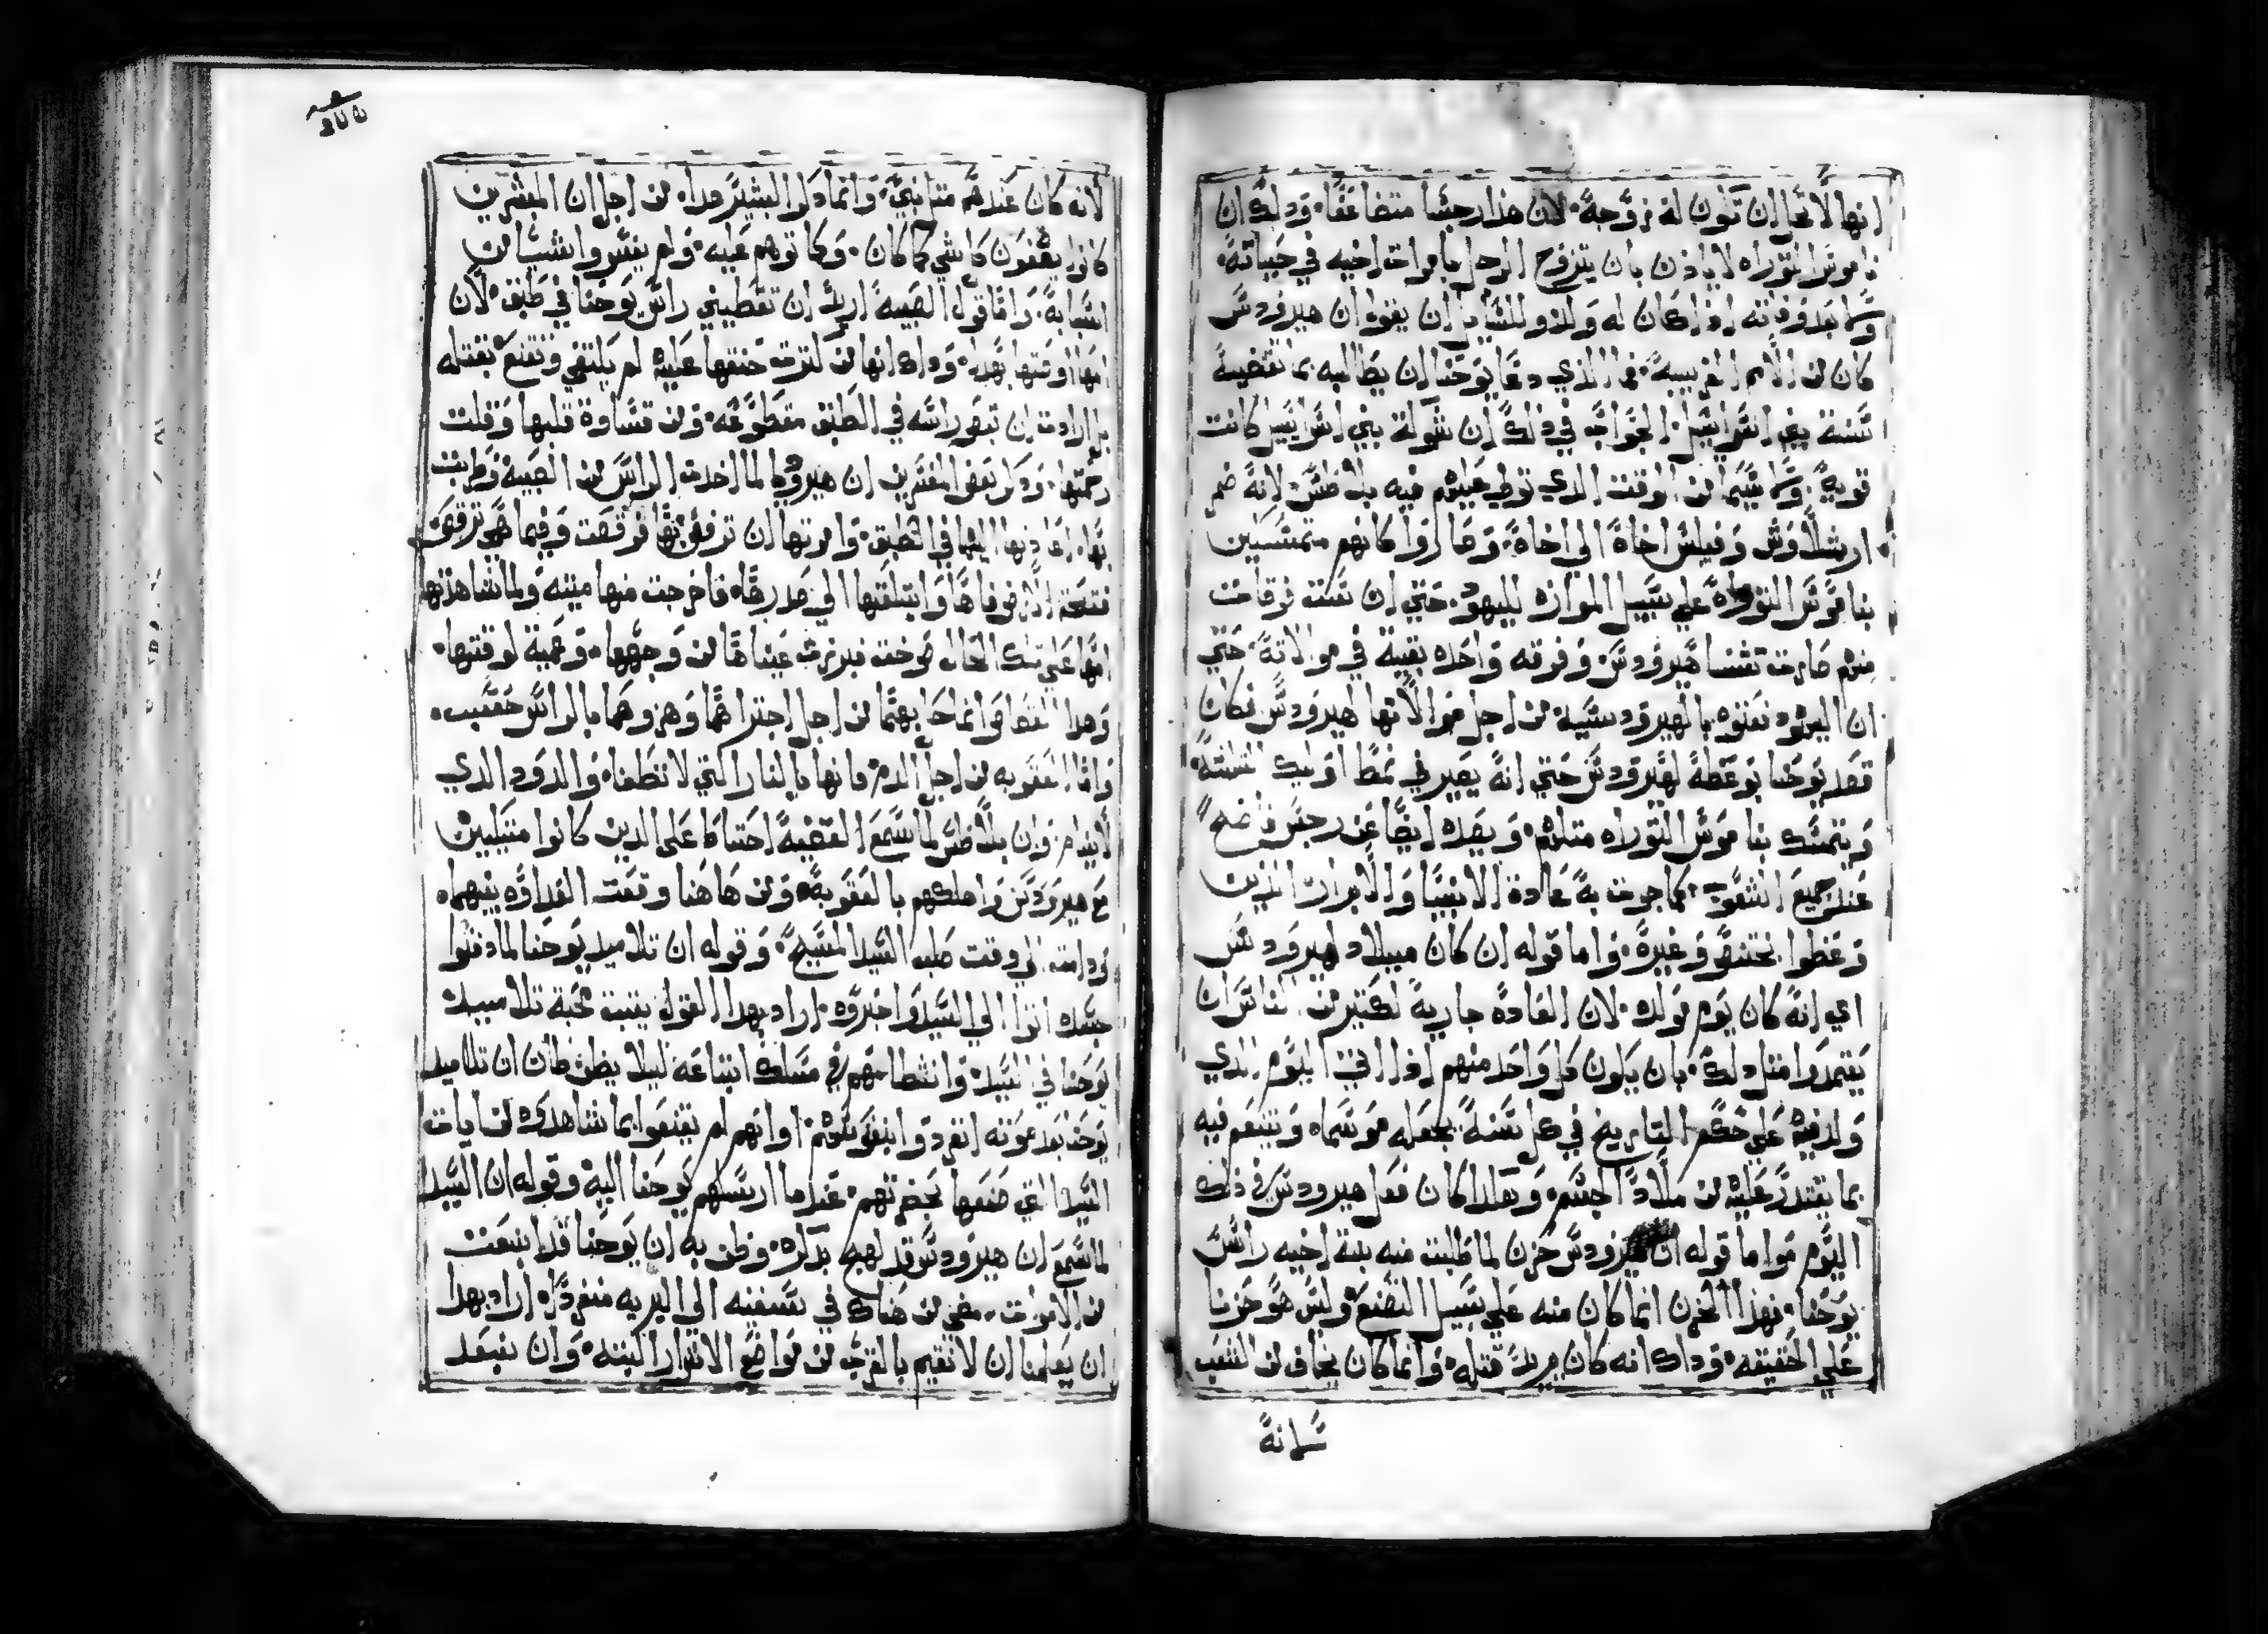 انها لا تحل ان تكون له زوجة لان هذا رجسا متضاعفا ودلك ان
ناموس التوراه لا ياذن بان يتزوج الرجل بامراة اخيه في حياته
ولا بعد وفاته اذا كان له ولد وللسايل ان يقول ان هيرودس
كان من الامم الغريبة فما الذي دعا يوحنا ان يطالبه بما تقضيه
سنة بني اسراييل الجواب في ذلك ان شوكة بني اسراييل كانت
قوية ولا سيما من الوقت الدي تولي عليهم فيه بلاطس لانه ضم
ارشلاوس وفيلبس اخاه الي اخاه وصاروا كانهم متمسكين
بناموس التوراه علي سبيل الموازه لليهود حتي ان
منهم صارت تنسب هيرودس وفرقه واحده بقية في موالاته حتي
ان اليهود نعتوه بالهيرودسية من اجل موالاتها هيرودس فكان
قصد يوحنا بوعظه لهيرودس حتي انه يصير في اوليك
ويتمسك بناموس التوراه متلهم ويصده ايضا عن رجس فاضح
عند جميع الشعوب كما جرت به عادة الانبيا والابرار الدين
وعظوا بختنصر وغيره واما قوله ان كان ميلاد هيرودس
اي انه كان يوم مولده لان العادة جارية لكتير من الناس ان
يعتمدوا متل دلك بان يكون كل واحد منهم ادا اليوم الدي
ولد فيه علي حكم التاريخ في كل سنة يجعله موسما ويتنعم فيه
بما يقتدر عليه من ملاد الجسم وهكدا كان فعل هيرودس في ذلك
اليوم واما قوله ان هيرودس حزن لما طلبت منه بنة اخيه راس
يوحنا فهذا الحزن انما كان منه علي سبيل التصنع وليس هو حزنا
علي الحقيقه وداك انه كان يريد قتله وانما كان يخاف من الشعب
لانه
لانه كان عندهم متل نبي وانما دكر البشير هدا من اجل ان المبشرين
كانوا يصفون كل شي كما كان وكما توهم عليه ولم يغيروا شيا من
واما قول الصبية اريد ان تعطيني راس يوحنا في طبق لان
امها اوصتها بهدا وداك انها من كترت حنقها عليه لم يكتفي وتقنع بقتله
بل ارادت ان تبصر راسه في الطبق مقطوعه ومن قساوة قلبها وقلت
رحمتها ودكر بعض المفسرين ان هيروديا لما اخدت الراس من الصبية وطربت
بها في الطبق وامرتها ان ترقص فرقصت وفيما هي ترقص
فتحت الارض فاها وابتلعتها الي صدرها فاخرجت منها ميته ولما شاهدتها
امها علي تلك الحال صرخت فبرزت عيناها من وجهها وعمية لوقتها
وهدا القصاص انما حل بهما من اجل اجتراهما وهزوهما بالراس فحسب
واما العقوبه من اجل الدم فانها بالنار التي لا تطفا والدود الدي
لا ينام وان بلاطس لما سمع القضية احتاط علي الدين كانوا متكيين
مع هيرودس واهلكهم بالعقوبة ومن هاهنا وقعت العداوه بينهما
ودامت الي وقت صلب السيد المسيح وقوله ان تلاميد يوحنا لما دفنوا
جسده اتوا الي السيد واخبروه اراد بهدا القول يتبت محبة تلاميد
يوحنا في السيد وانتظامهم في مسلك اتباعه ليلا يظن ظان ان تلاميد
يوحنا بعد موته اوانهم لم يقنعوا بما شاهدوه من ايات
السيد التي صنعها بحضرتهم عندما ارسلهم يوحنا اليه وقوله ان السيد
لما سمع ان هيرودس قد لهج بدكره وظن به ان يوحنا قد انبعت
من الاموات مضي من هناك في سفينه الي البريه منفردا اراد بهدا
ان يعلمنا ان لا نقيم بالقرب من مواضع الاشرار البته وان نبتعد